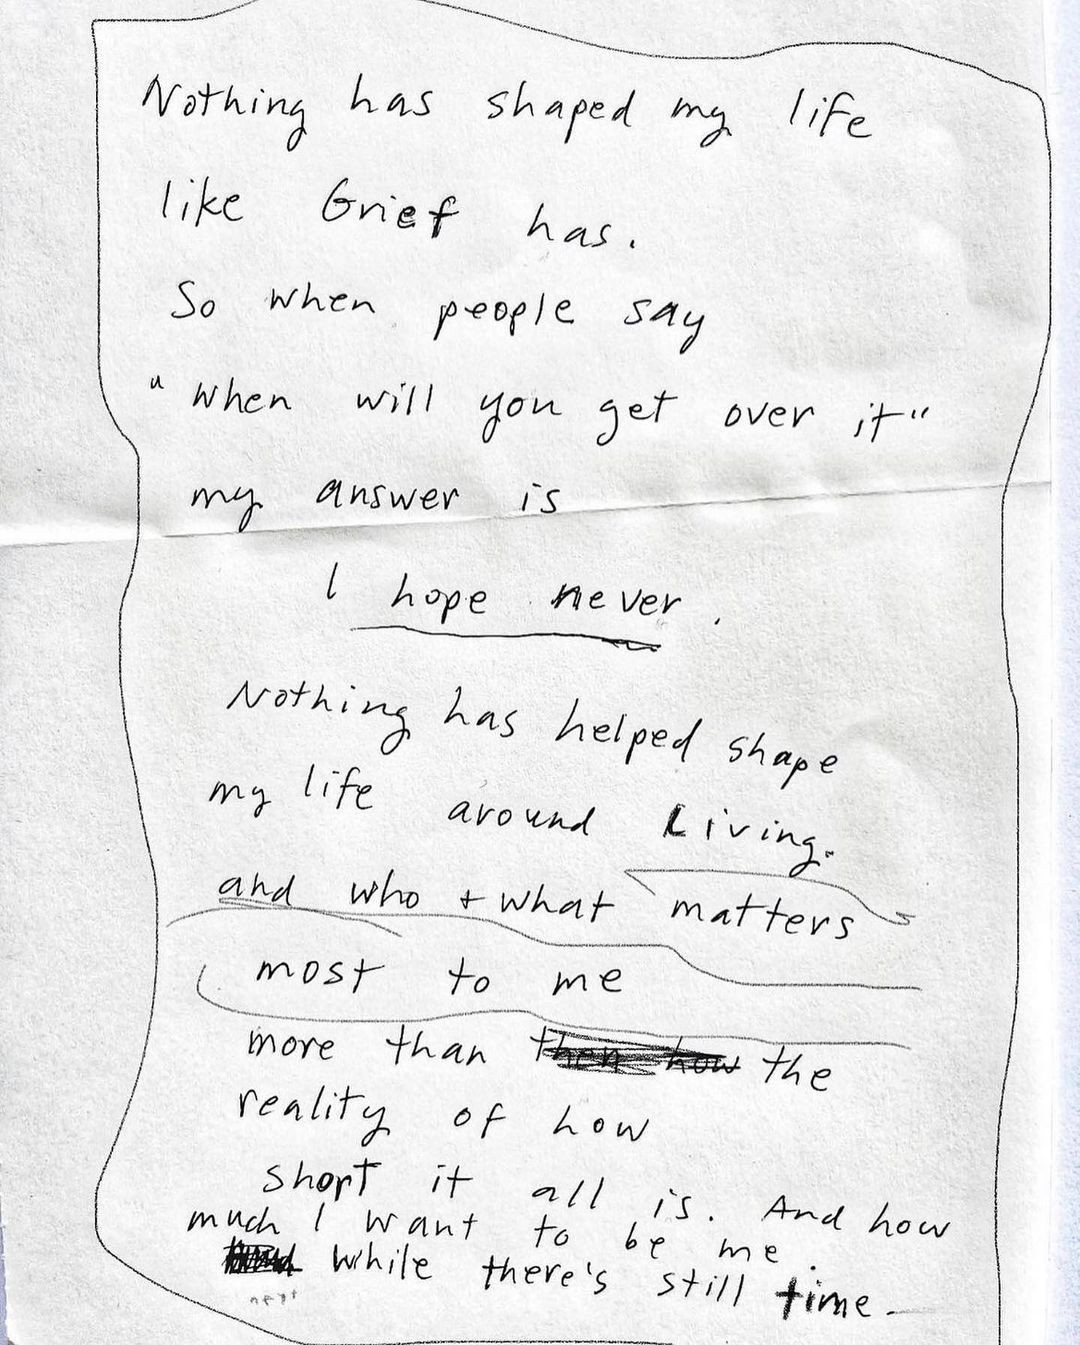 Nothing has shaped my life
like Grief has.
So when people say
"when will you get over it"
my answer is
I hope never.
Nothing has helped shape
my life around Living.
and who + what matters
most to me
more than then how the
reality of how
short it all is. And how
much I want to be me
while there's still time.